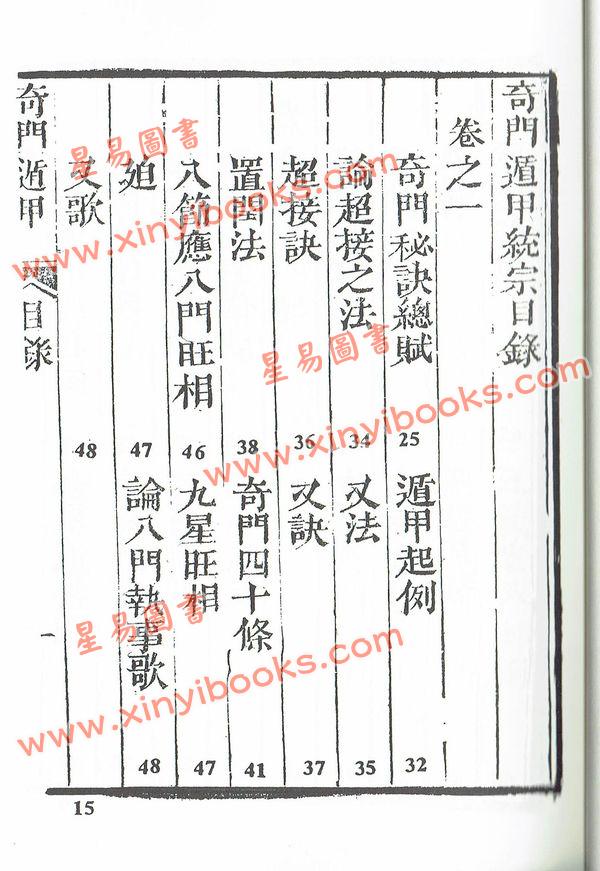 奇門遁甲統宗目錄
卷之一
奇門秘訣總賦 25 遁甲起例 32
論超接之法 34 又法 35
超接訣 36 又訣 37
置閏法 38 奇門四十條 41
八節應八門旺相 46 九星旺相 47
迫 47 論八門執事歌 48
又歌 48
奇門遁甲 目錄 一
15
星易圖書
www.xinyibooks.com
星易圖書
www.xinyibooks.com
星易圖書
www.xinyibooks.com